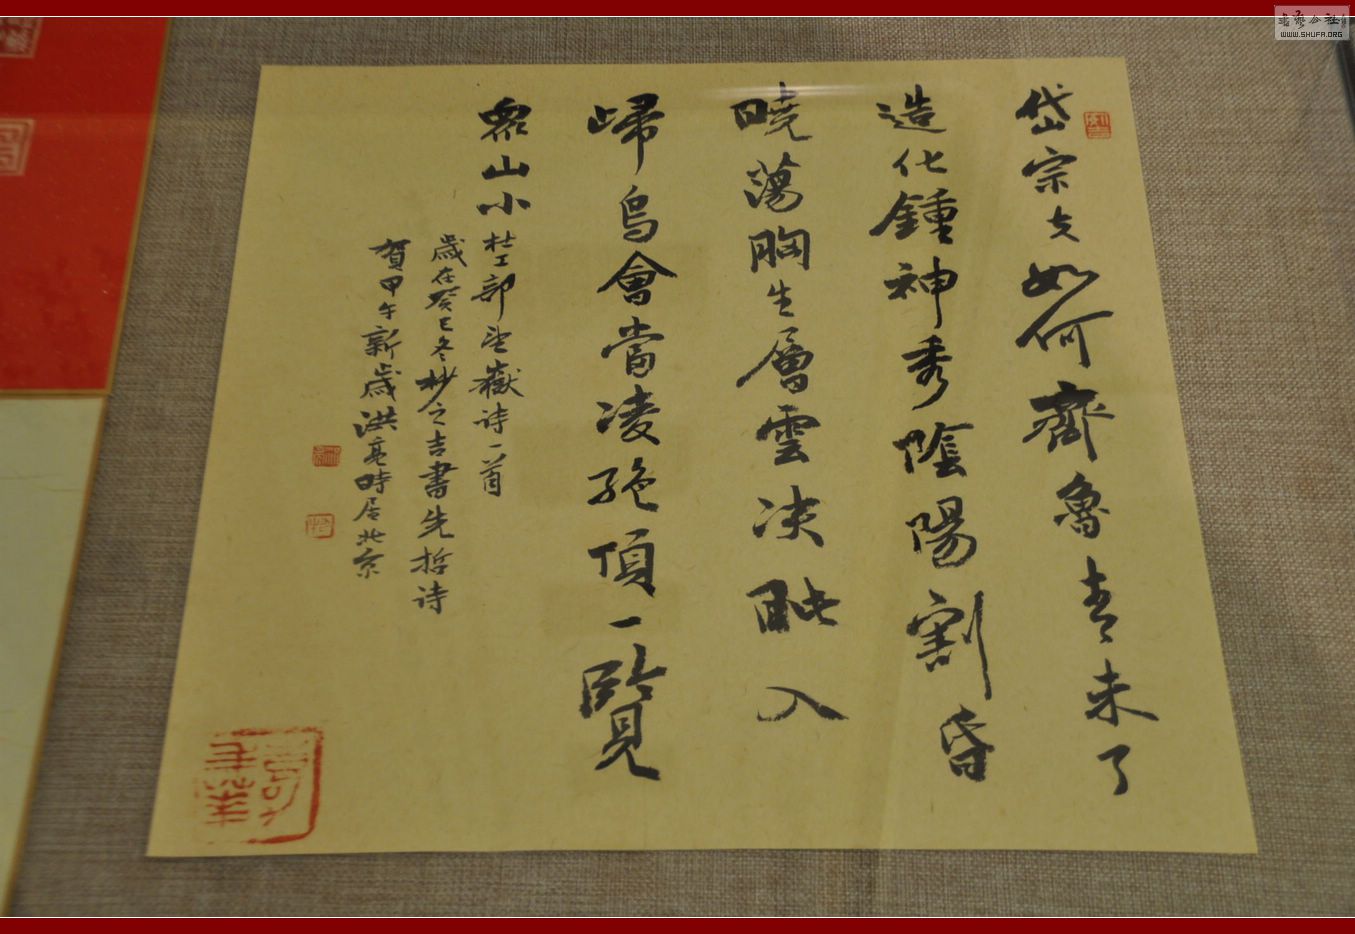 岱宗夫如何齊魯青未了
造化鍾神秀陰陽割昏
曉蕩胸生層雲決眦入
歸鳥會當凌絕頂一覽
眾山小
杜工部望嶽诗一首
歲在癸巳冬杪之吉書先哲诗
賀甲午新歲洪亮時居北京
書法公社
WWW.SHUFA.ORG